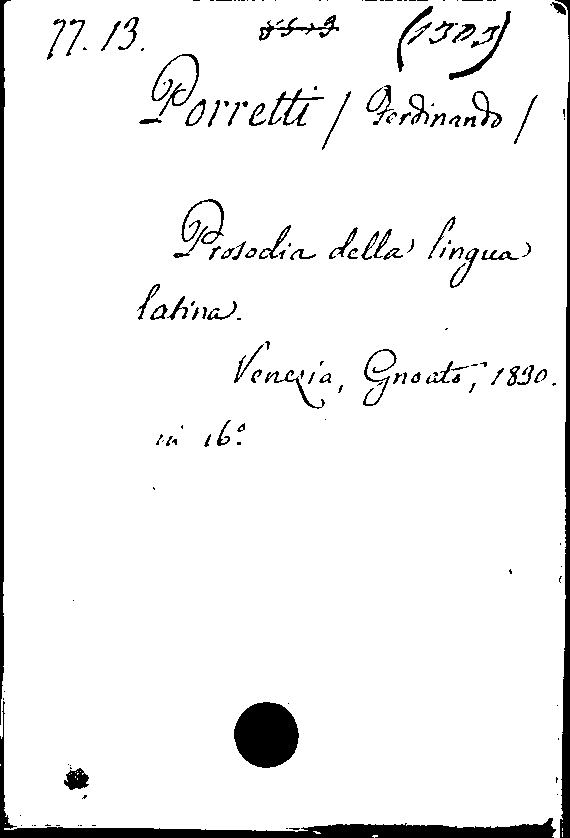 77. 13. (1303)
Porretti / Ferdinando /
Prosodia della lingua
latina.
Venezia, Gnoato, 1830.
in 16.º